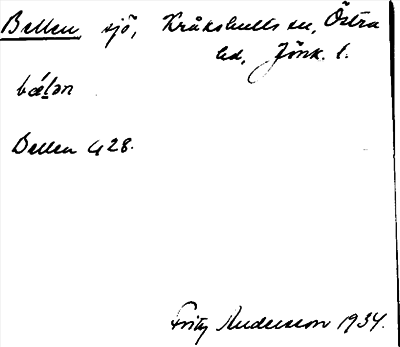 Bellen, sjö, Kråkshults sn, Östra
hd, Jönk. l.
bǽlən
Bellen G 28.
Fritz Andersson 1934.